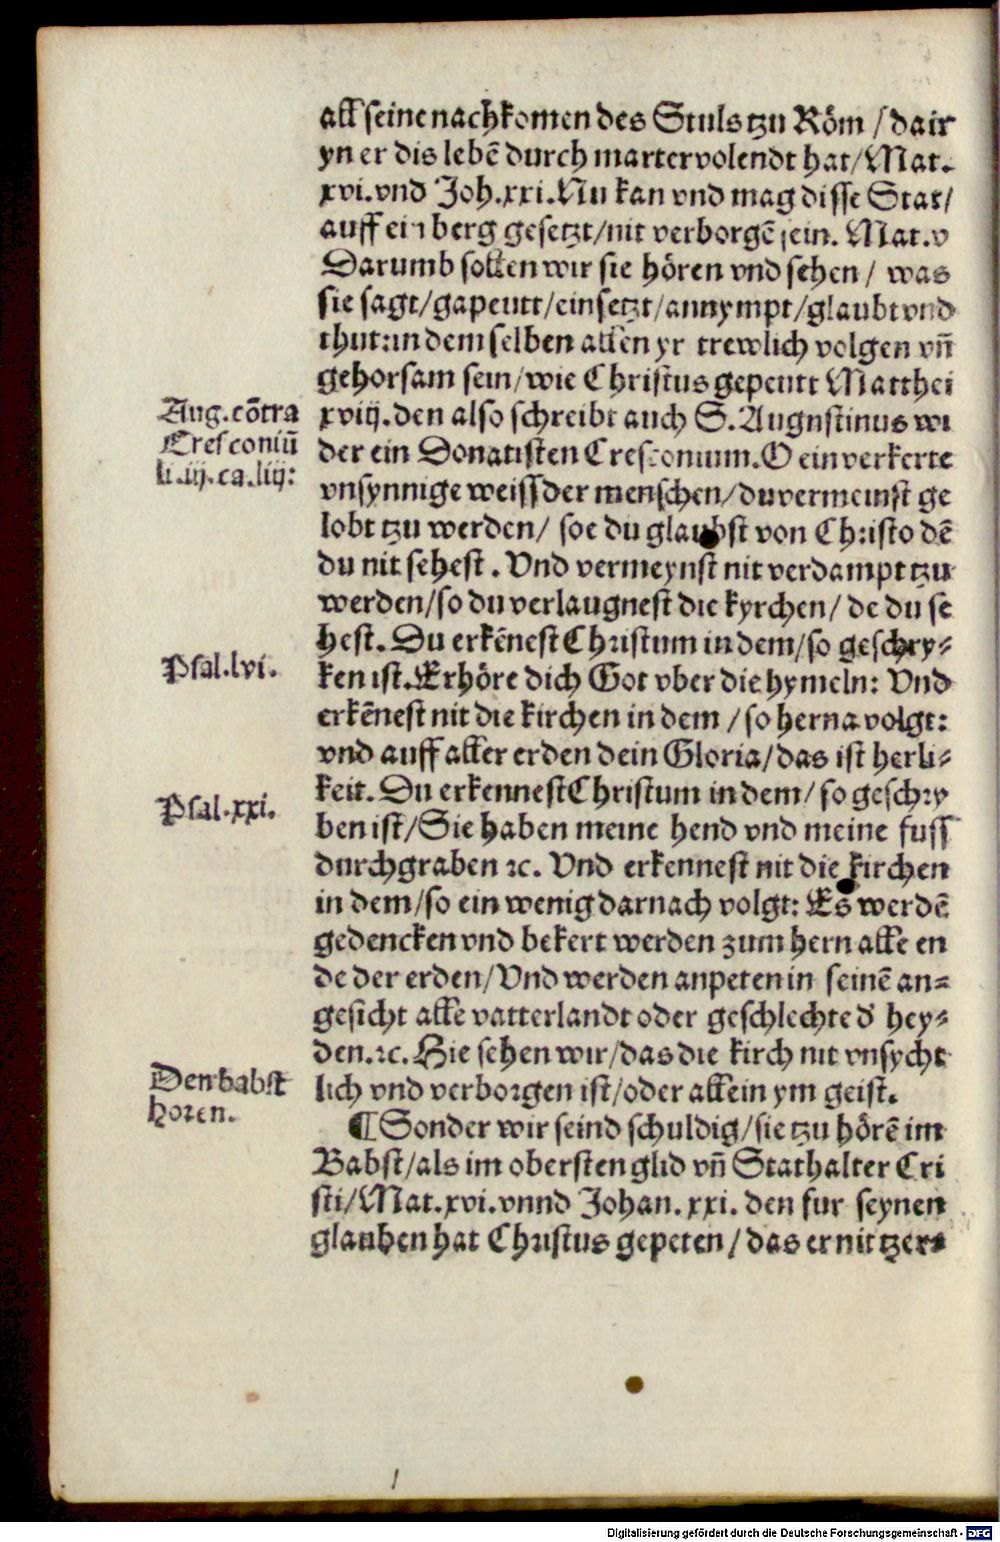 all seine nachkomen des Stuls tzu Röm / dair
yn er dis lebē durch marter volendt hat / Mat.
xvi. vnd Joh. xxi. Nu kan vnd mag disse Stat /
auff ein berg gesetzt / nit verborgē sein. Mat. v
Darumb sollen wir sie hören vnd sehen / was
sie sagt / gapeutt / einsetzt / annympt / glaubt vnd
thut: in dem selben allen yr trewlich volgen vñ
gehorsam sein / wie Christus gepeutt Matthei
Aug. cōtra
Cresconiū
li. iij. ca. liij:
xviij. den also schreibt auch S. Augustinus wi
der ein Donatisten Cresconium. O ein verkerte
vnsynnige weiss der menschen / du vermeinst ge
lobt tzu werden / soe du glaubst von Christo dē
du nit sehest. Vnd vermeynst nit verdampt tzu
werden / so du verlaugnest die kyrchen / de du se
hest. Du erkēnest Christum in dem / so geschry⸗
Psal. lvi.
ken ist. Erhöre dich Got vber die hymeln: Vnd
erkēnest nit die kirchen in dem / so herna volgt:
vnd auff aller erden dein Gloria / das ist herli⸗
keit. Du erkennest Christum in dem / so geschry
Psal. xxi.
ben ist / Sie haben meine hend vnd meine fuss
durchgraben ꝛc. Vnd erkennest nit die kirchen
in dem / so ein wenig darnach volgt: Es werdē
gedencken vnd bekert werden zum hern alle en
de der erden / Vnd werden anpeten in seinē an⸗
gesicht alle vatterlandt oder geschlechte d' hey⸗
den. ꝛc. Hie sehen wir / das die kirch nit vnsycht
Den babst
horen.
lich vnd verborgen ist / oder allein ym geist.
¶ Sonder wir seind schuldig / sie tzu hörē im
Babst / als im obersten glid vñ Stathalter Cri
sti / Mat. xvi. vnnd Johan. xxi. den fur seynen
glauben hat Christus gepeten / das er nit tzer⸗
Digitalisierung gefördert durch die Deutsche Forschungsgemeinschaft - DFG